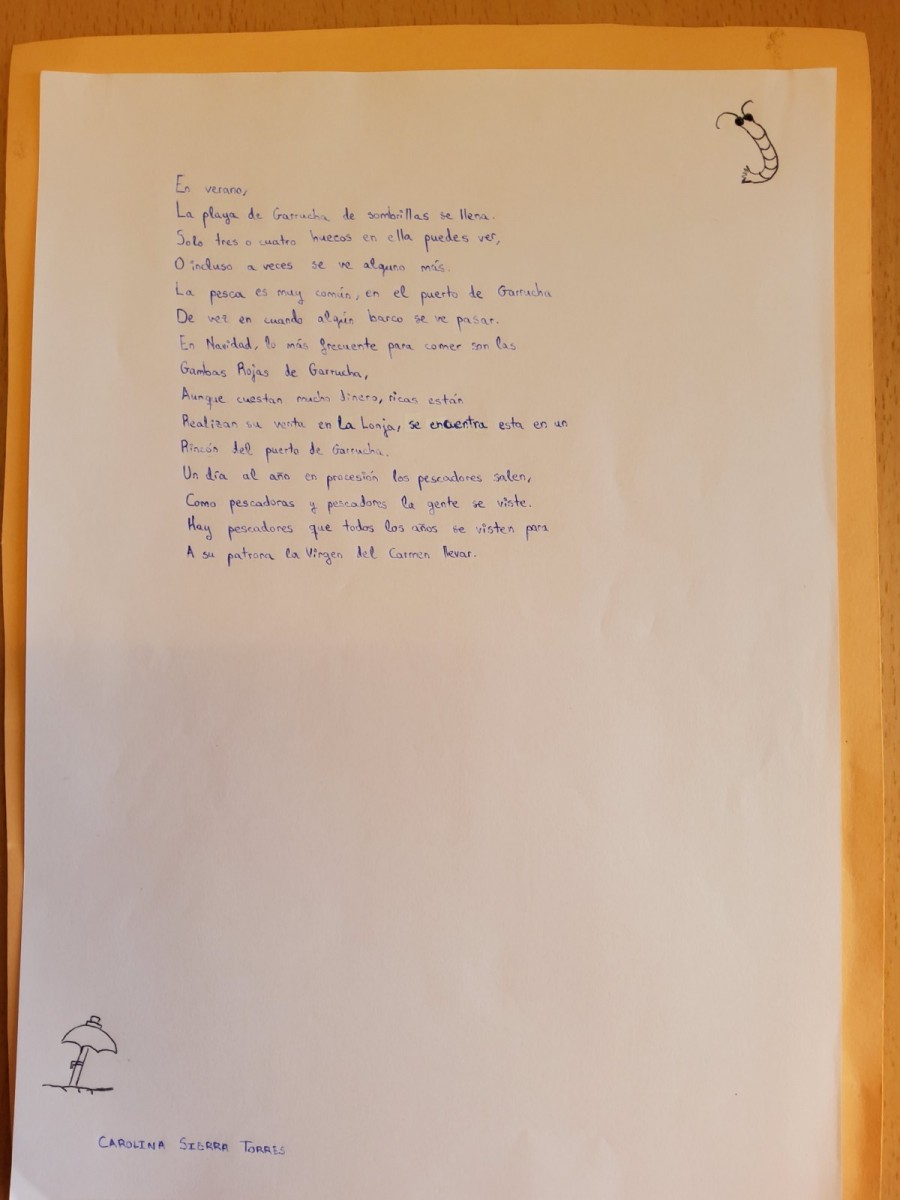 En verano,
La playa de Garrucha de sombrillas se llena.
Solo tres o cuatro huecos en ella puedes ver,
O incluso a veces se ve alguno más.
La pesca es muy común, en el puerto de Garrucha
De vez en cuando algún barco se ve pasar.
En Navidad, lo más frecuente para comer son las
Gambas Rojas de Garrucha,
Aunque cuestan mucho dinero, ricas están
Realizan su venta en La Lonja, se encuentra esta en un
Rincón del puerto de Garrucha.
Un día al año en procesión los pescadores salen,
Como pescadoras y pescadores la gente se viste.
Hay pescadores que todos los años se visten para
A su patrona la Virgen del Carmen llevar.
CAROLINA SIERRA TORRES